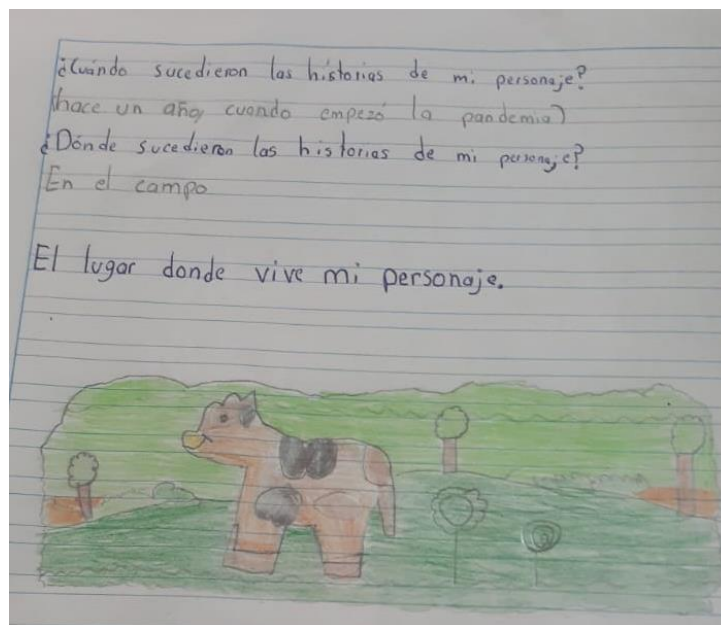 ¿Cuándo sucedieron las historias de mi personaje?
(hace un año, cuando empezó la pandemia)
¿Dónde sucedieron las historias de mi personaje?
En el campo
El lugar donde vive mi personaje.